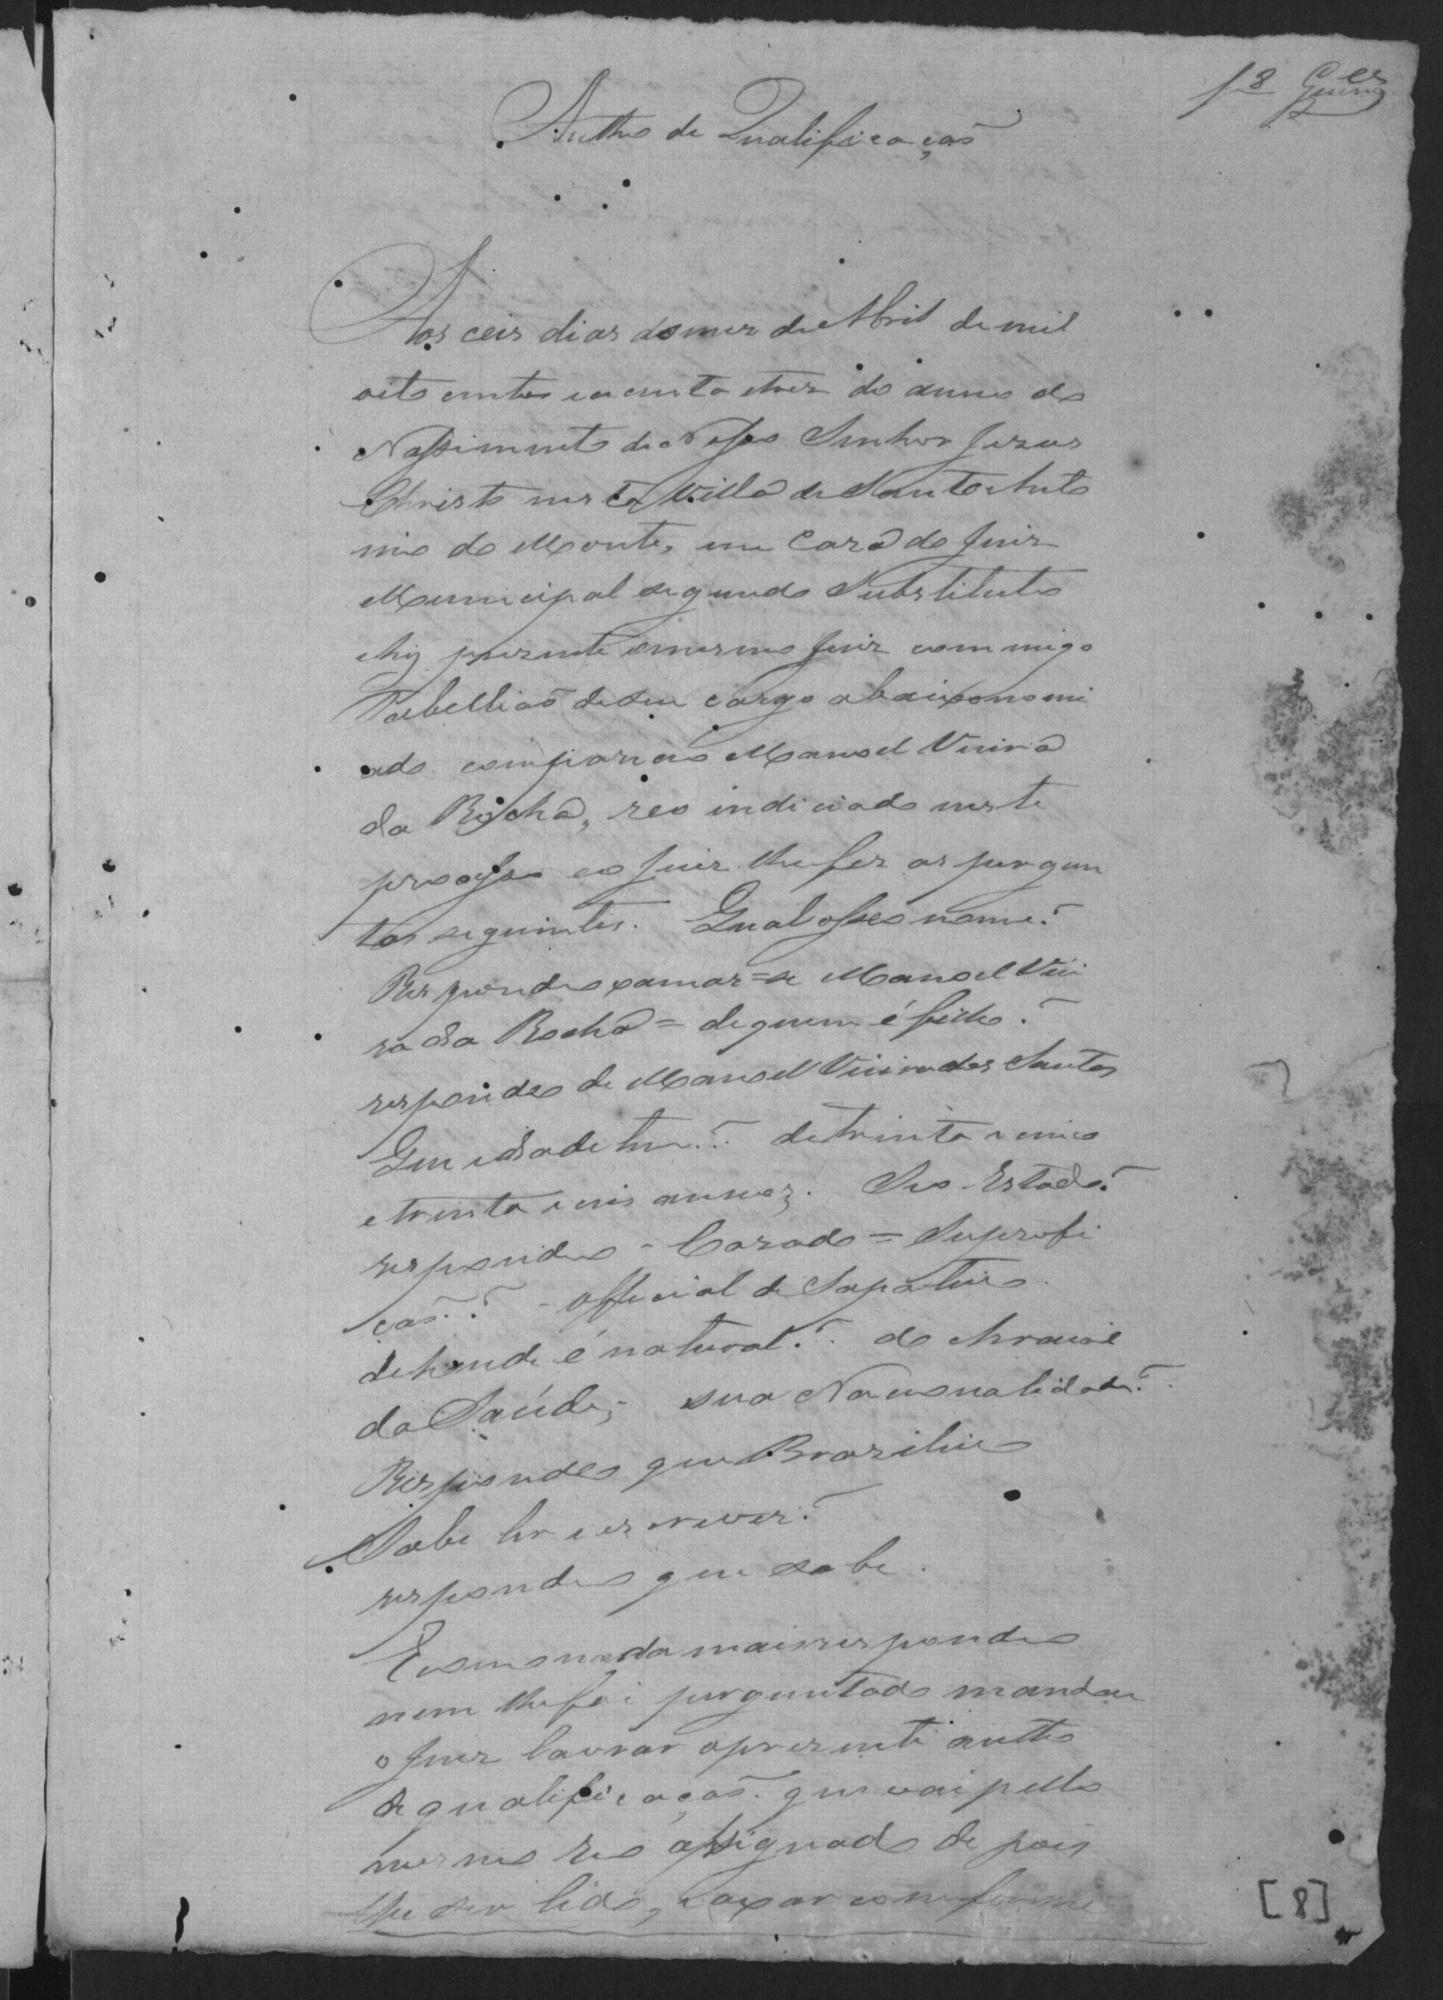 f 8
Autto de Qualificação
Aos ceis dias do mes de Abril de mil
oito centos e oenta e tres do anno do
Nassimento de Nosso Senhor Jezus
Christo nesta Villa de Santo Anto
nio do Monte, em Caza do Juiz
Municipal segundo Substituto
ahy prezente o mesmo Juiz commigo
Tabellião de seu cargo abaixo nomi
ado compareceo Manoel Vieira
da Rocha, reo indiciado neste
processo e o Juiz lhe fez as pergun
tas seguintes. Qual o seo nome?
Respondeo xamar=se Manoel Viei
ra da Rocha = de quem é filho?
respondeo de Manoel Vieira dos Santos
Que idade tem? de trinta e cinco
e trinta e ceis annos; Seo Estado?
respondeo - Cazado = Su profi
ção? - official de Sapateiro.
de honde é natural? do Arraial
da Saúde; sua Nacionalidade?
Respondeo que Brazileiro
Sabe ler e escrever?
respondeo que sabe.
E como nada mais respondeo
nem lhe foi perguntado mandou
o Juiz lavrar o prezente autto
de qualificação que vai pello
mesmo reo assignado depois
lhe ser lido, e axar conforme
[8]